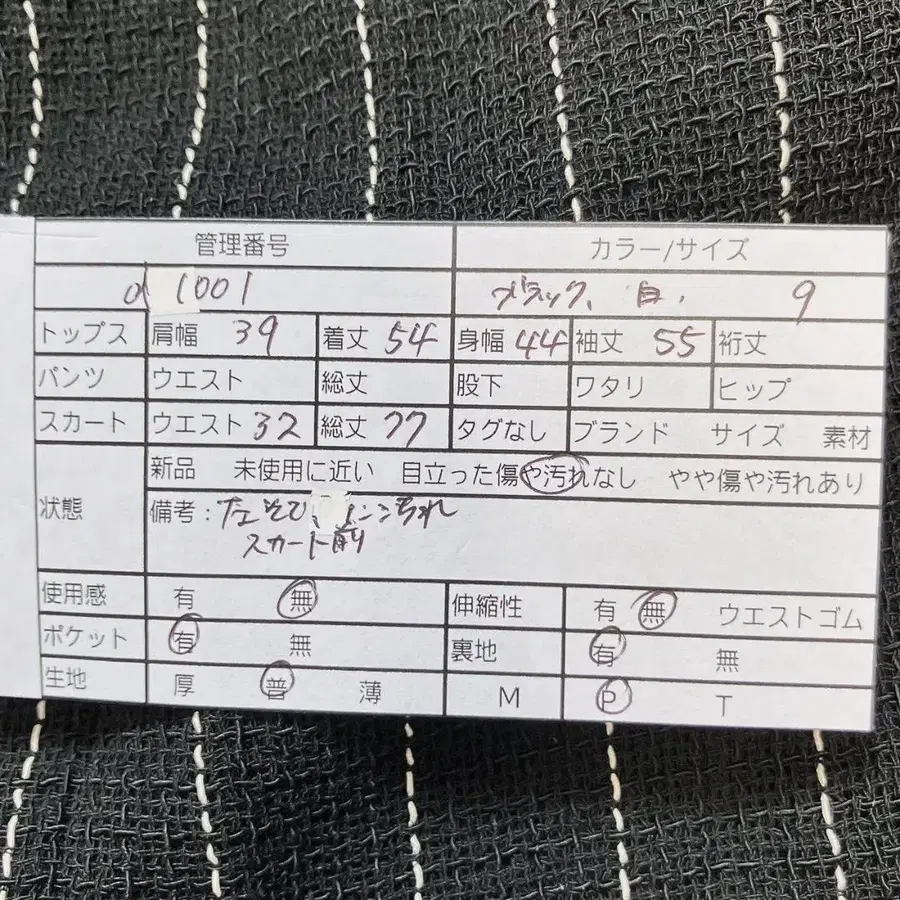 管理番号 カラー/サイズ
1001 ブラック、白. 9
トップス 肩幅 39 着丈 54 身幅 44 袖丈 55 裄丈
パンツ ウエスト 総丈 股下 ワタリ ヒップ
スカート ウエスト 32 総丈 77 タグなし ブランド サイズ 素材
状態 新品 未使用に近い 目立った傷や汚れなし やや傷や汚れあり
備考: 左そで、 汚れ
スカート前
使用感 有 無 伸縮性 有 無 ウエストゴム
ポケット 有 無 裏地 有 無
生地 厚 普 薄 M P T